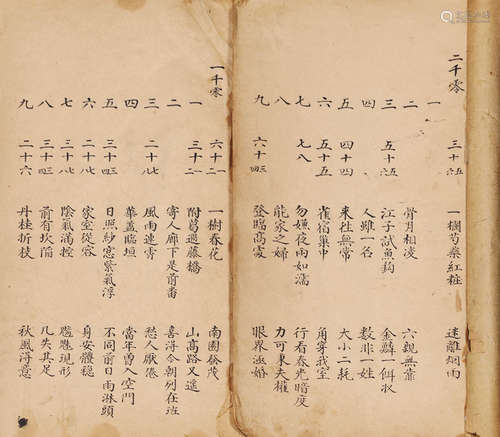 二千零 三十五 一欄芍藥紅粧 迷離烟雨
一
二 骨肉相凌 六親無靠
三 五十五 江子試魚鈎 金鱗一餌收
四 人雖一名 數非一姓
五 四十四 来往無常 大小二耗
六 五十五 雀宿巢中 角穿我室
七 七八 勿嫌夜雨如濡 行看春光暗度
八 能家之婦 力可兼夫權
九 六十四 登臨高處 眼界
一千零 六十二 一樹春花 南園發茂
一 三十二 附葛過藤橋 山高路又遥
二 寄人廊下是前番 喜得今朝列在班
三 二十八 風雨連霄 愁人厭倦
四 華蓋臨垣 當年曾入空門
五 三十四 日照紗窓紫氣浮 不同前日雨淋頭
六 二十八 家室從容 身安體穩
七 二十八 陰氣滿控 魑魅現形
八 三十四 前有坎陷 几失其足
九 二十六 丹桂折枝 秋風得意